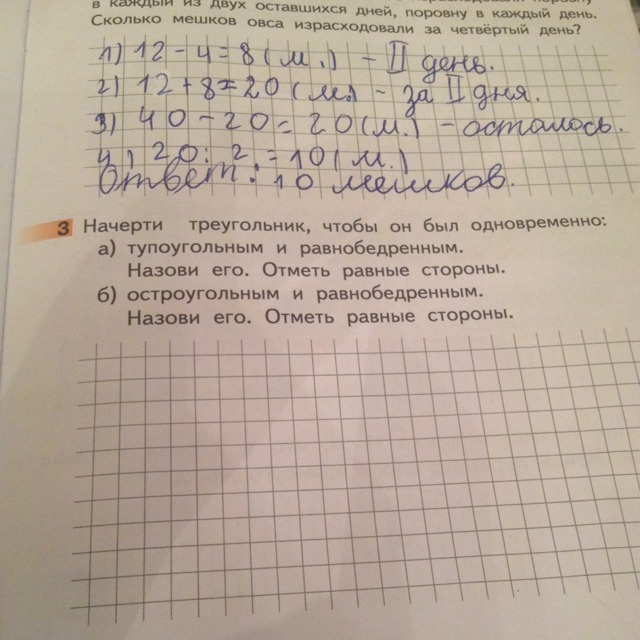 в каждый из двух оставшихся дней, поровну в каждый день.
Сколько мешков овса израсходовали за четвёртый день?
1) 12 - 4 = 8 (м.) - II день.
2) 12 + 8 = 20 (м.) - за II дня.
3) 40 - 20 = 20 (м.) - осталось.
4) 20 : 2 = 10 (м.)
Ответ: 10 мешков.
3 Начерти треугольник, чтобы он был одновременно:
а) тупоугольным и равнобедренным.
Назови его. Отметь равные стороны.
б) остроугольным и равнобедренным.
Назови его. Отметь равные стороны.